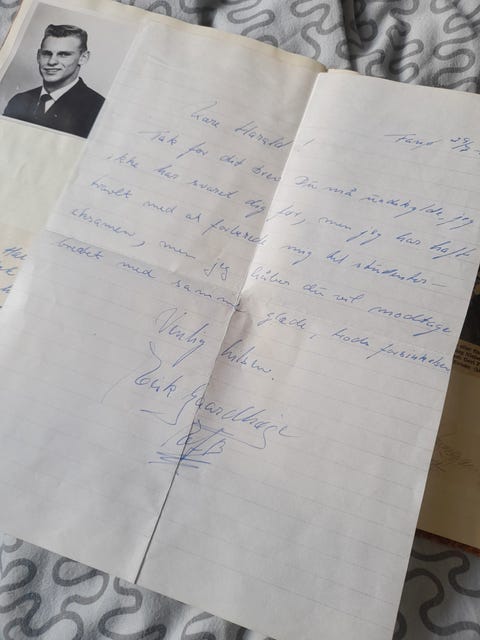 Kære Harald!
Farsø 29/12
Tak for dit brev. Du må undskylde, jeg
ikke har svaret dig før, men jeg har haft
travlt med at forberede mig til studenter-
eksamen, men jeg håber du vil modtage
billedet med samme glæde, trods forsinkelsen
Venlig hilsen.
Erik Gaardhøje